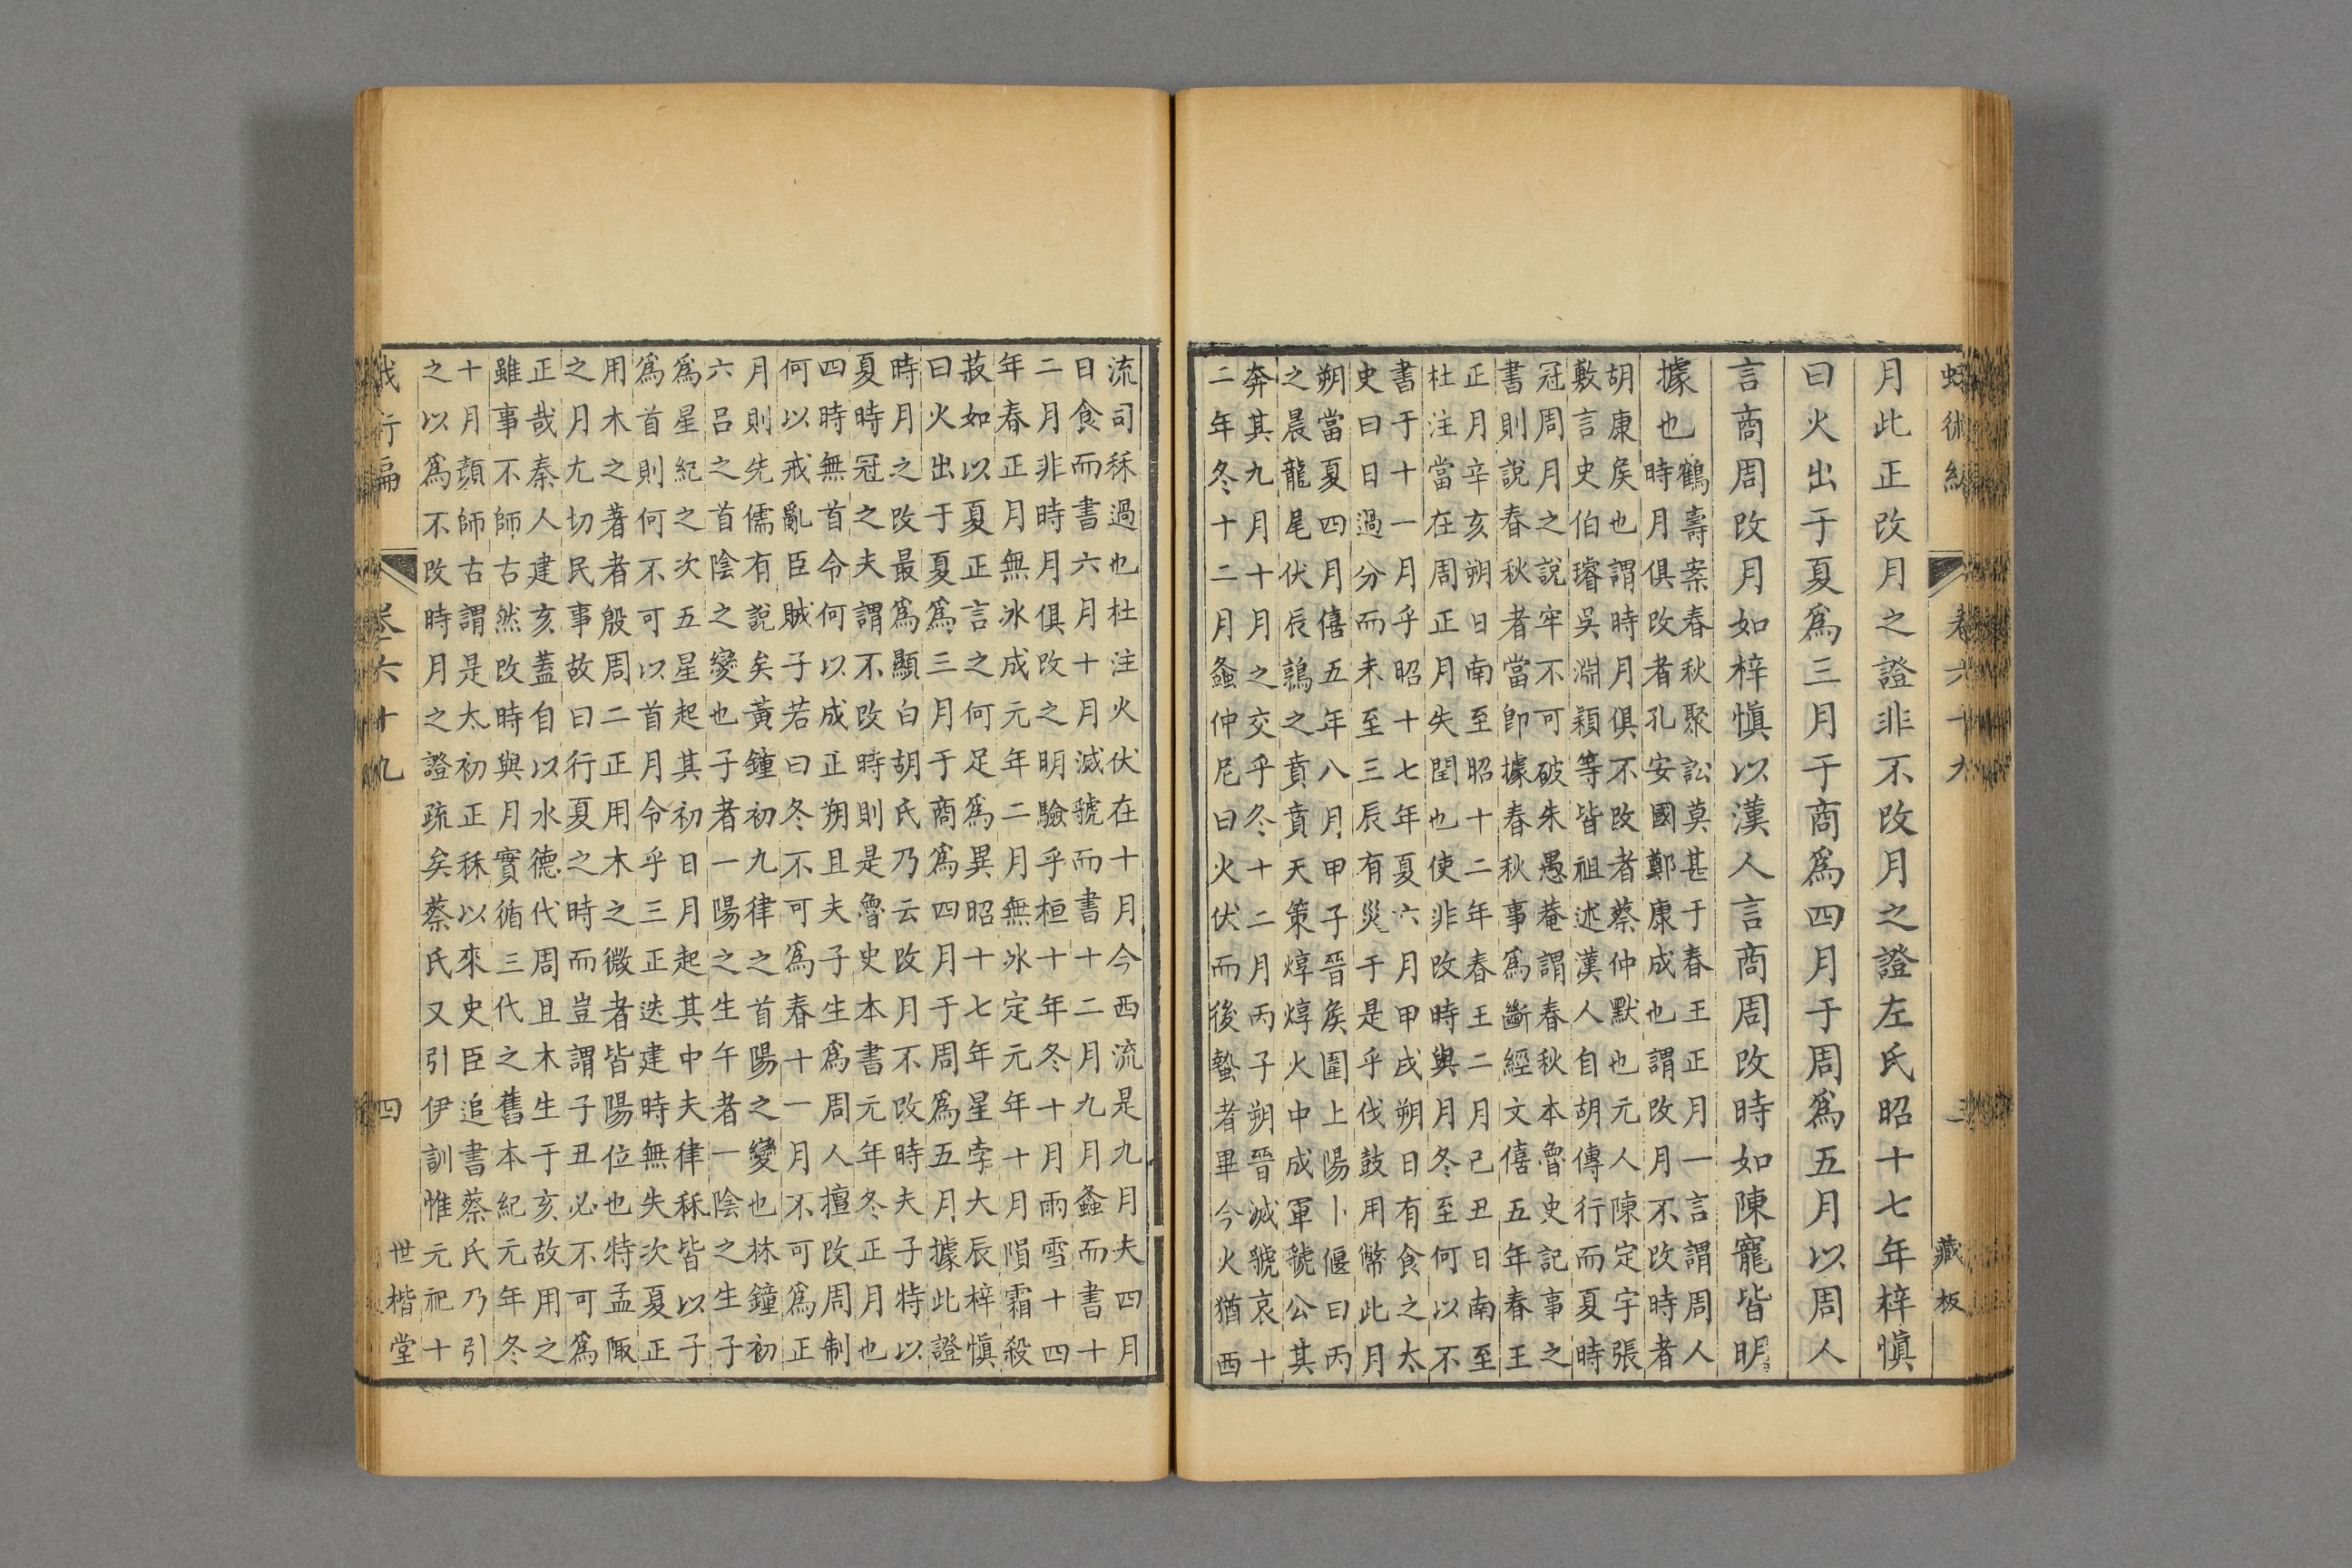 蛾術編 卷六十九 三 藏板
月此正改月之證非不改月之證左氏昭十七年梓慎
曰火出于夏爲三月于商爲四月于周爲五月以周人
言商周改月如梓慎以漢人言商周改時如陳寵皆明
據也
鶴壽案春秋聚訟莫甚于春王正月一言謂周人
時月俱改者孔安國鄭康成也謂改月不改時者
胡康矦也謂時月俱不改者蔡仲默也元人陳定宇張
敷言史伯璿吳淵穎等皆祖述漢人自胡傳行而夏時
冠周月之說牢不可破朱愚菴謂春秋本魯史記事之
書則說春秋者當卽據春秋事爲斷經文僖五年春王
正月辛亥朔日南至昭十二年春王二月己丑日南至
杜注當在周正月失閏也使非改時與月冬至何以不
書于十一月乎昭十七年夏六月甲戌朔日有食之太
史曰日過分而未至三辰有災于是乎伐鼓用幣此月
朔當夏四月僖五年八月甲子晉矦圍上陽卜偃曰丙
之晨龍尾伏辰鶉之賁賁天策焞焞火中成軍虢公其
奔其九月十月之交乎冬十二月丙子朔晉滅虢哀十
二年冬十二月螽仲尼曰火伏而後蟄者畢今火猶西
流司秝過也杜注火伏在十月今西流是九月夫四月
日食而書六月十月滅虢而書十二月九月螽而書十
二月非時月俱改之明驗乎桓十年冬十月雨雪十四
年春正月無冰成元年二月無冰定元年十月隕霜殺
菽如以夏正言之何足爲異昭十七年星孛大辰梓慎
曰火出于夏爲三月于商爲四月于周爲五月據此證
時月之改最爲顯白胡氏乃云改月不改時夫子特以
夏時冠之夫謂不改時則是魯史本書元年冬正月也
四時無首令何以成正朔且夫子生爲周人擅改周制
何以戒亂臣賊子若曰冬不可爲春十一月不可爲正
月則先儒有說矣黃鐘初九律之首陽之變也林鐘初
六呂之首陰之變也子者一陽之生午者一陰之生子
爲星紀之次五星起其初日月起其中夫律秝皆以子
爲首則何不可以首月令乎三正迭建時無失次夏正
用木之著者殷周二正用木之微者皆陽位也特孟陬
之月尤切民事故曰行夏之時而豈謂子丑必不可爲
正哉秦人建亥蓋自以水德代周且木生于亥故用之
雖事不師古然改時與月實循三代之舊本紀元年冬
十月顔師古謂是太初正秝以來史臣追書蔡氏乃引
之以爲不改時月之證疏矣蔡氏又引伊訓惟元祀十
蛾術編 卷六十九 四 世楷堂